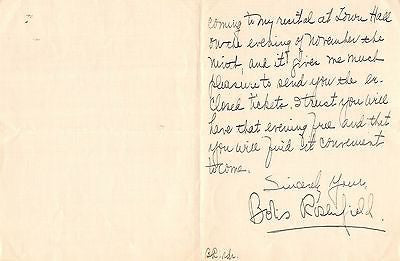 coming to my recital at Town Hall
on the evening of November the
ninth, and it gives me much
pleasure to send you the en-
closed tickets. I trust you will
have that evening free and that
you will find it convenient
to come.
Sincerely Yours,
Boris Rosenfield.